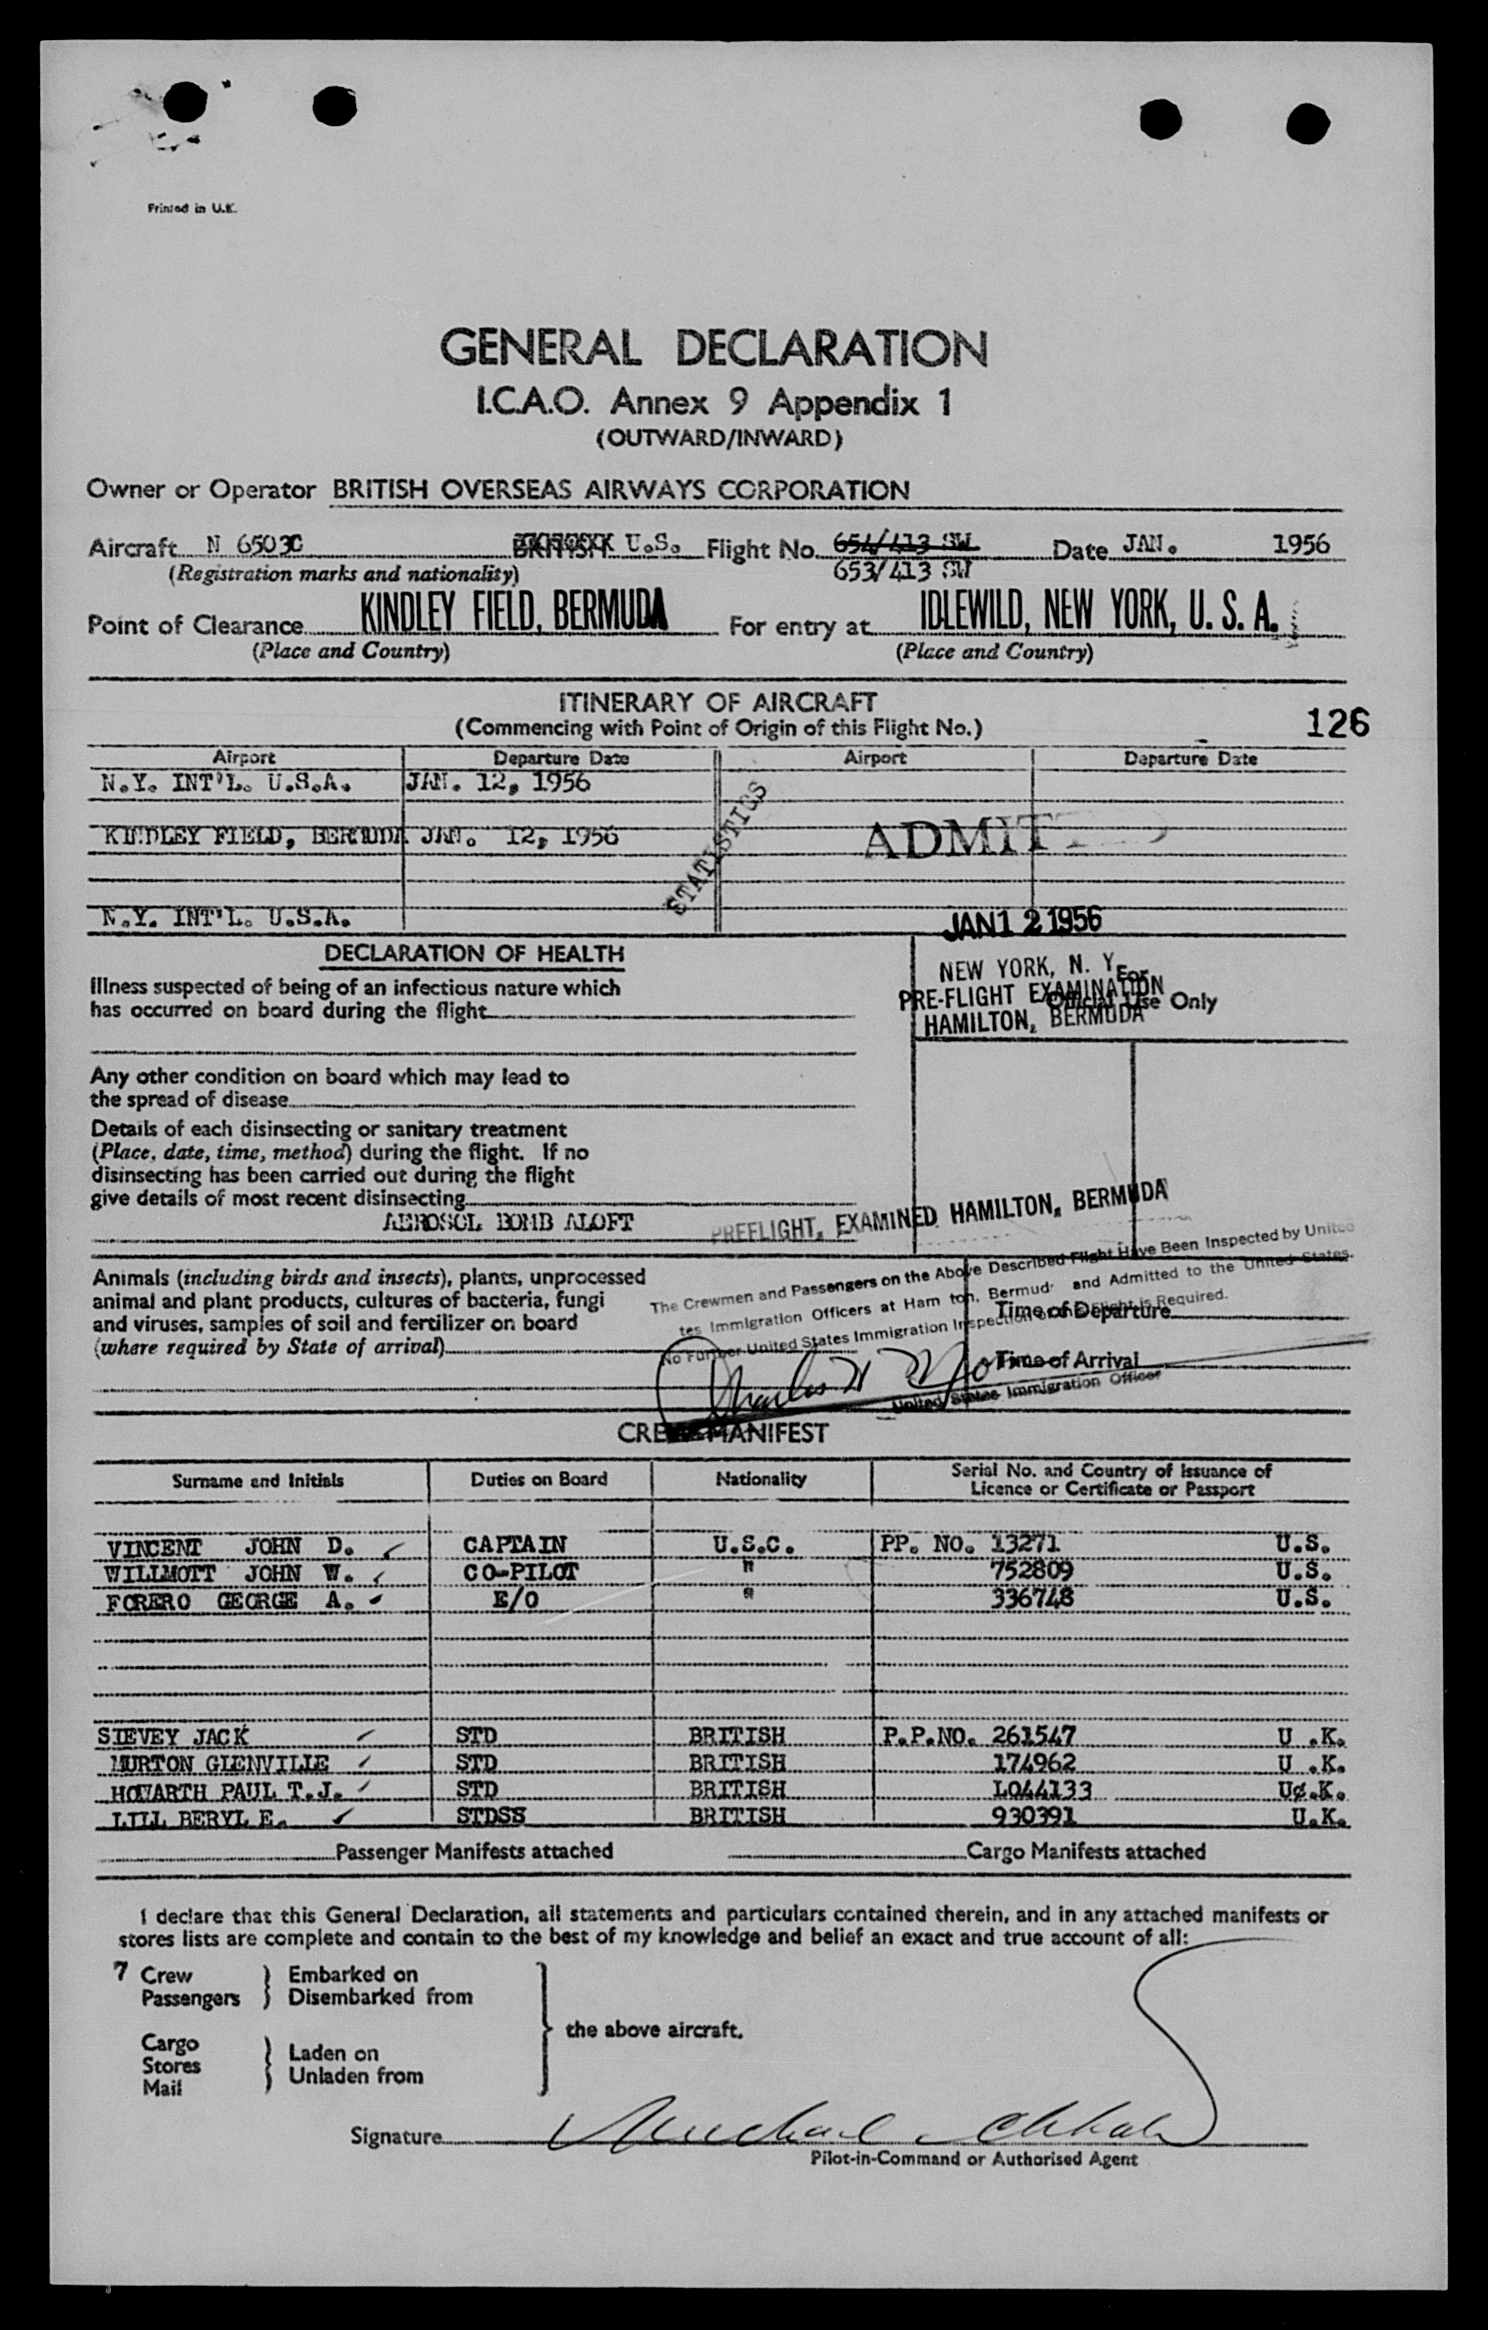 Printed in U.K.
GENERAL DECLARATION
I.C.A.O. Annex 9 Appendix 1
(OUTWARD/INWARD)
Owner or Operator BRITISH OVERSEAS AIRWAYS CORPORATION
Aircraft N 6503C BRITISH U.S. Flight No. 654/413 SW Date JAN. 1956
(Registration marks and nationality) 653/413 SW
Point of Clearance KINDLEY FIELD, BERMUDA For entry at IDLEWILD, NEW YORK, U. S. A.
(Place and Country) (Place and Country)
ITINERARY OF AIRCRAFT
(Commencing with Point of Origin of this Flight No.) 126
Airport Departure Date Airport Departure Date
N.Y. INT'L. U.S.A. JAN. 12, 1956
STATISTICS
KINDLEY FIELD, BERMUDA JAN. 12, 1956 ADMITTED
N.Y. INT'L. U.S.A.
JAN 12 1956
DECLARATION OF HEALTH
NEW YORK, N. Y. For
Illness suspected of being of an infectious nature which
PRE-FLIGHT EXAMINATION Official Use Only
has occurred on board during the flight
HAMILTON, BERMUDA
Any other condition on board which may lead to
the spread of disease
Details of each disinsecting or sanitary treatment
(Place, date, time, method) during the flight. If no
disinsecting has been carried out during the flight
give details of most recent disinsecting
AEROSOL BOMB ALOFT PREFLIGHT, EXAMINED HAMILTON, BERMUDA
Animals (including birds and insects), plants, unprocessed
animal and plant products, cultures of bacteria, fungi
and viruses, samples of soil and fertilizer on board
(where required by State of arrival)
The Crewmen and Passengers on the Above Described Flight Have Been Inspected by United
tes Immigration Officers at Ham ton, Bermud and Admitted to the United States.
No Further United States Immigration Inspection of this Flight is Required.
Time of Departure
Time of Arrival
Charles W
United States Immigration Officer
CREW MANIFEST
Surname and Initials Duties on Board Nationality Serial No. and Country of Issuance of
Licence or Certificate or Passport
VINCENT JOHN D. CAPTAIN U.S.C. PP. NO. 13271 U.S.
WILLMOTT JOHN W. CO-PILOT " 752809 U.S.
FORERO GEORGE A. E/O " 336748 U.S.
SIEVEY JACK STD BRITISH P.P.NO. 261547 U .K.
MURTON GLENVILLE STD BRITISH 174962 U .K.
HOWARTH PAUL T.J. STD BRITISH L044133 U.K.
LILL BERYL E. STDSS BRITISH 930391 U.K.
Passenger Manifests attached Cargo Manifests attached
I declare that this General Declaration, all statements and particulars contained therein, and in any attached manifests or
stores lists are complete and contain to the best of my knowledge and belief an exact and true account of all:
7 Crew Embarked on
Passengers Disembarked from
the above aircraft.
Cargo
Stores Laden on
Mail Unladen from
Signature
Pilot-in-Command or Authorised Agent